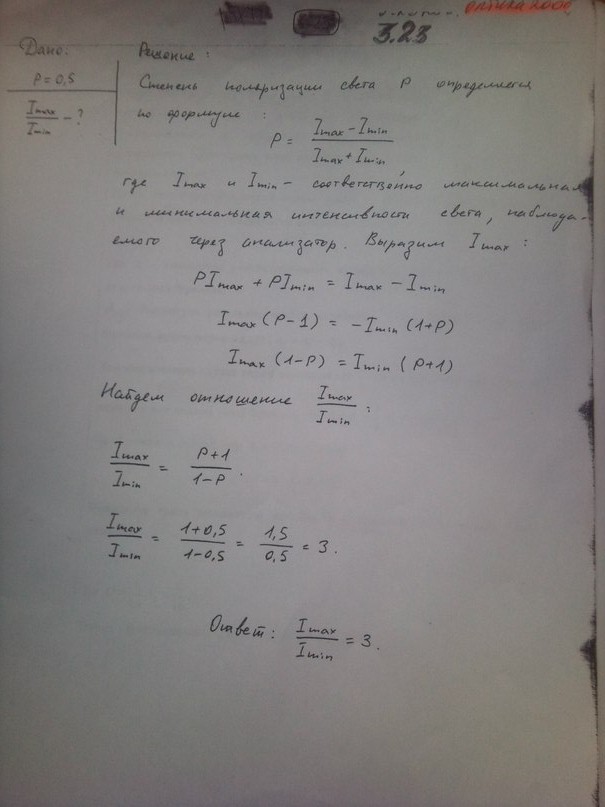 3.23
Дано:
P = 0,5
Imax/Imin - ?
Решение:
Степень поляризации света P определяется
по формуле :
P = (Imax - Imin)/(Imax + Imin),
где Imax и Imin - соответственно максимальная
и минимальная интенсивности света, наблюда-
емого через анализатор. Выразим Imax :
PImax + PImin = Imax - Imin
Imax (P-1) = -Imin (1+P)
Imax (1-P) = Imin (P+1)
Найдем отношение Imax/Imin :
Imax/Imin = (P+1)/(1-P).
Imax/Imin = (1+0,5)/(1-0,5) = 1,5/0,5 = 3.
Ответ: Imax/Imin = 3.